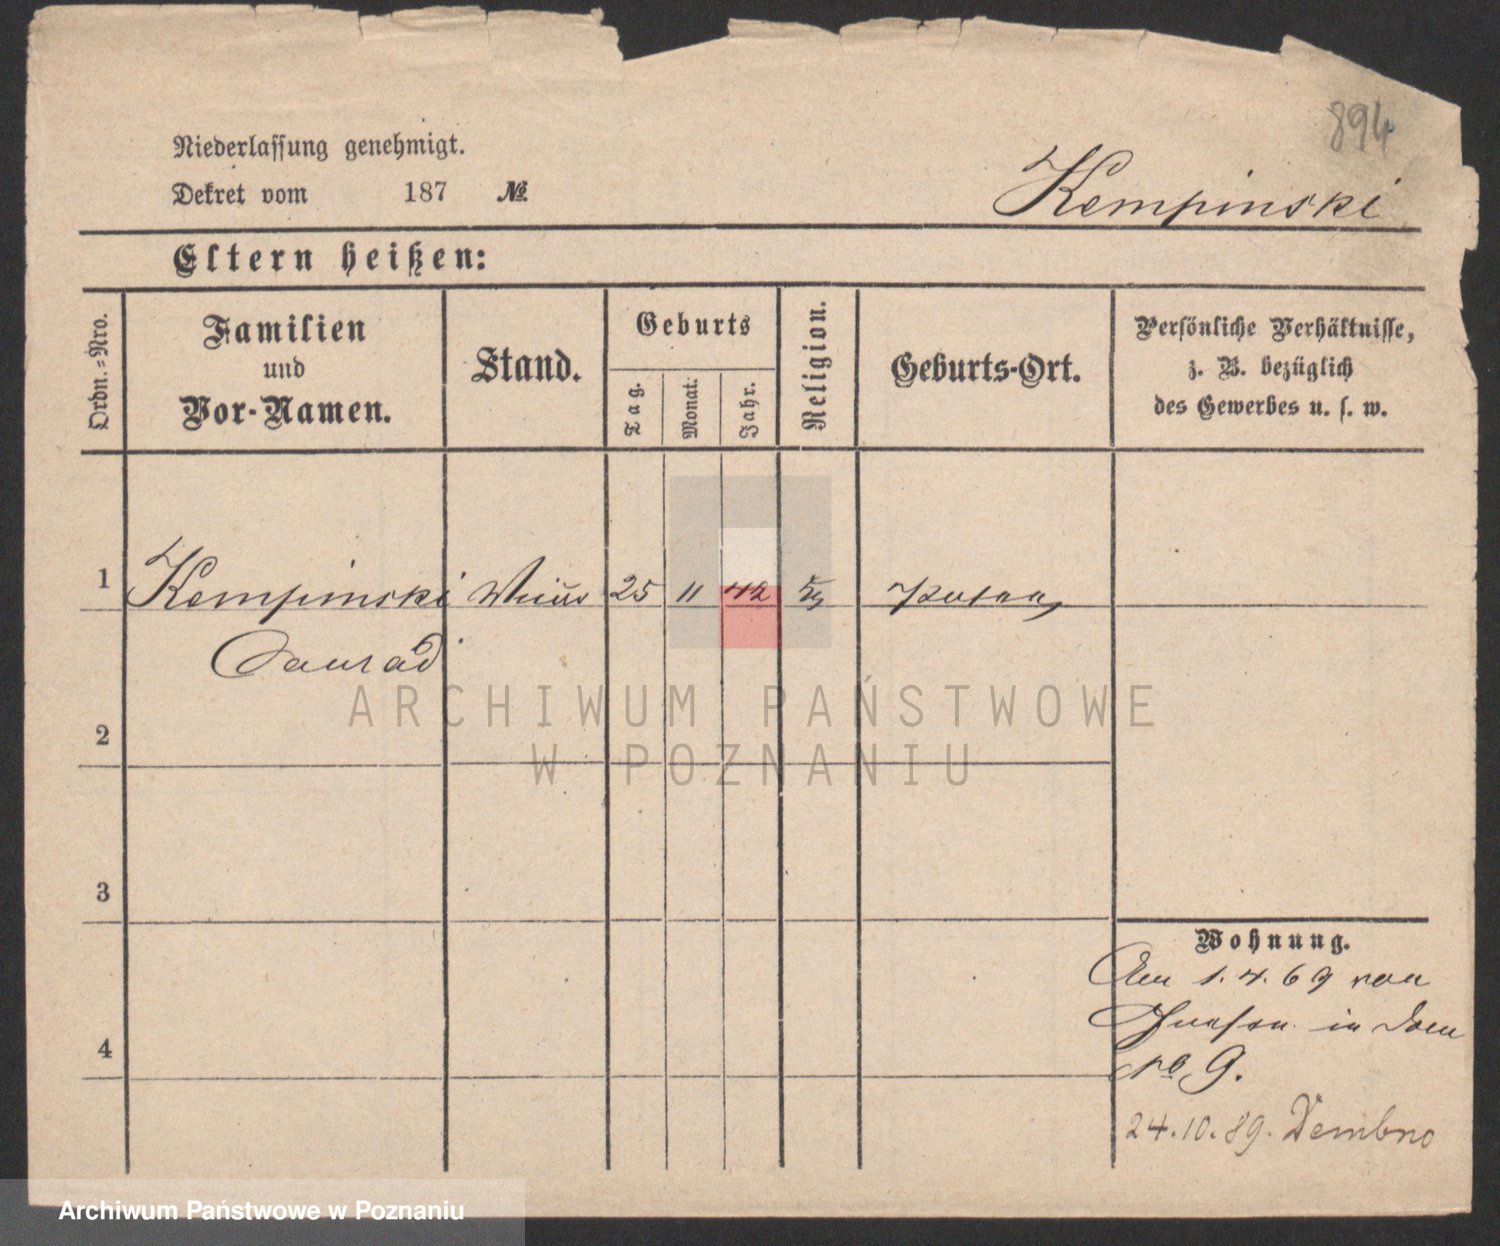 894
Niederlassung genehmigt.
Dekret vom 187 №
Kempinski
Eltern heißen:
Ordn.-Nro.
Familien
und
Vor-Namen.
Stand.
Geburts
Tag.
Monat.
Jahr.
Religion.
Geburts-Ort.
Persönliche Verhältnisse,
z. B. bezüglich
des Gewerbes u. s. w.
1 Kempinski 25 11 42 Posen
Conrad
ARCHIWUM PAŃSTWOWE
W POZNANIU
2
3
Wohnung.
1.4.69 von
Gnesen in Dom
No 9.
4
24.10.89. Dembno
Archiwum Państwowe w Poznaniu